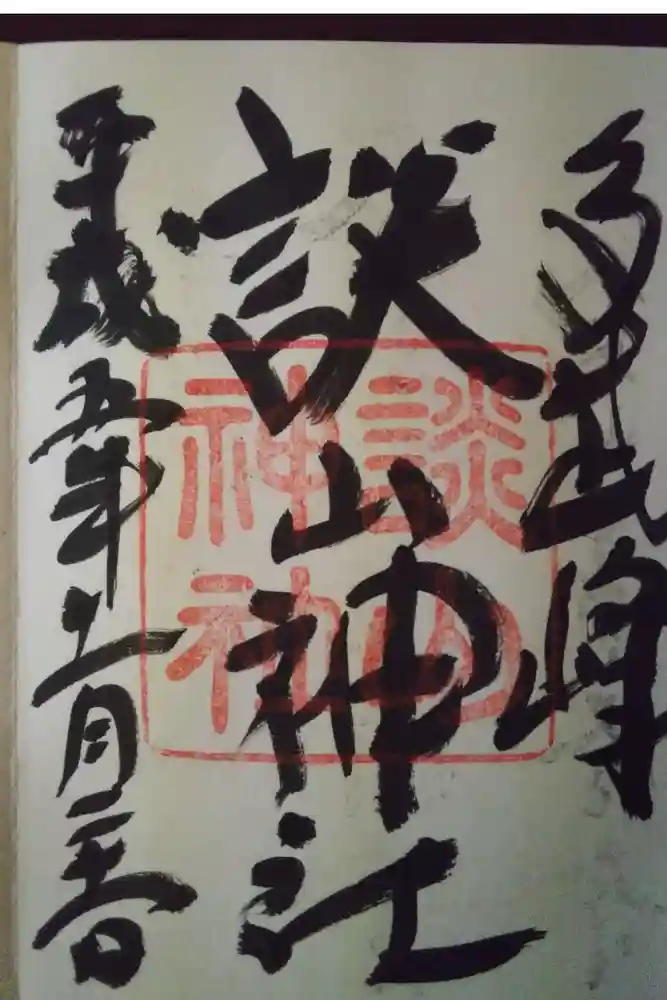 多武峰
談山神社
談山
神社
平成五年十一月